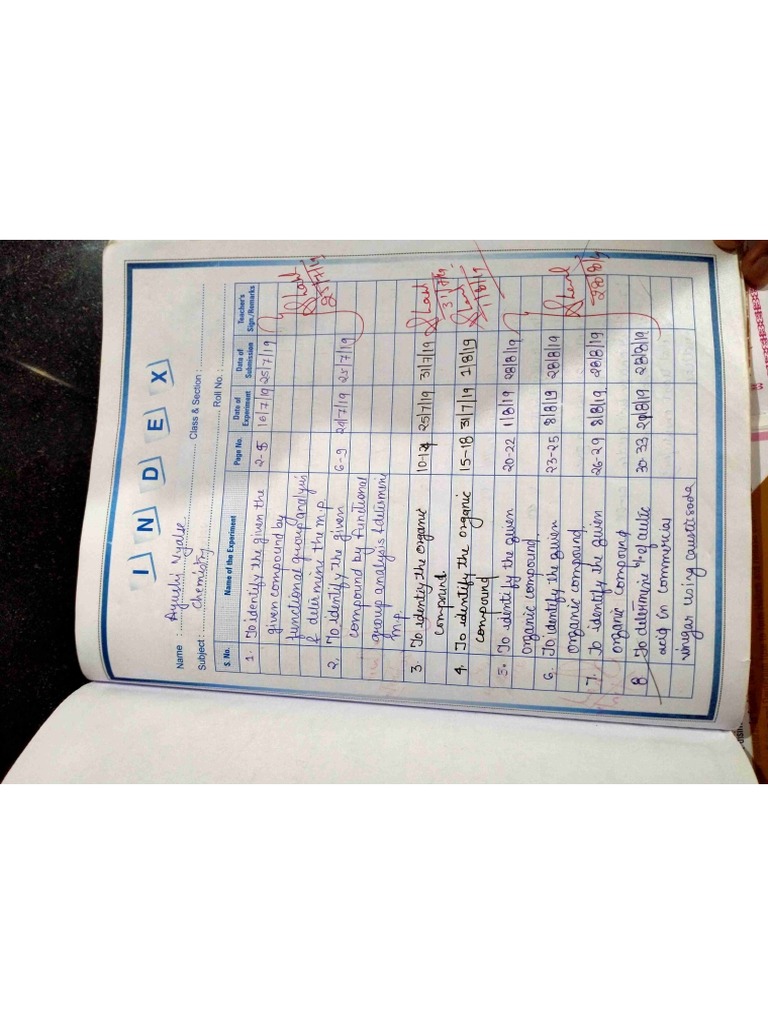 INDEX
Name : Ayushi Nyalse
Class & Section :
Subject : Chemistry
Roll No. :
S. No. Name of the Experiment Page No. Date of Experiment Date of Submission Teacher's Sign./Remarks
1. To identify the given the 2-5 16/7/19 25/7/19
given compound by
functional group analysis
& determine the m.p. 25/7/19
2. To identify the given 6-9 24/7/19 25/7/19
compound by functional
group analysis & determine
m.p.
3. To identify the organic 10-14 25/7/19 31/7/19
compound. 31/7/19
4. To identify the organic 15-18 31/7/19 1/8/19
compound 1/8/19
5. To identify the given 20-22 1/8/19 28/8/19
organic compound.
6. To identify the given 23-25 8/8/19 28/8/19
organic compound.
7. To identify the given 26-29 8/8/19 28/8/19 28/8/19
organic compound
8. To determine % of acetic 30-33 28/8/19
acid in commercial
vinegar using caustic soda